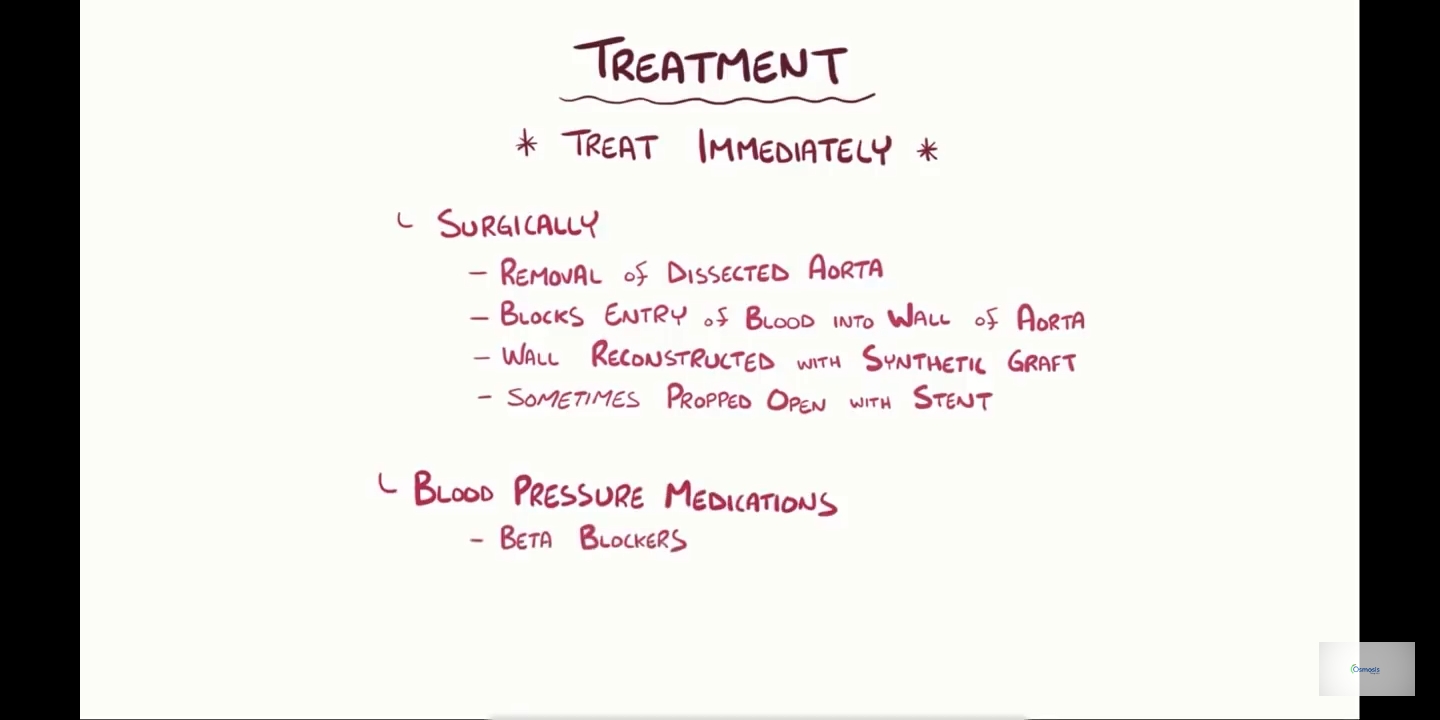 TREATMENT
* TREAT IMMEDIATELY *
SURGICALLY
- REMOVAL of DISSECTED AORTA
- BLOCKS ENTRY of BLOOD INTO WALL of AORTA
- WALL RECONSTRUCTED WITH SYNTHETIC GRAFT
- SOMETIMES PROPPED OPEN WITH STENT
BLOOD PRESSURE MEDICATIONS
- BETA BLOCKERS
Osmosis